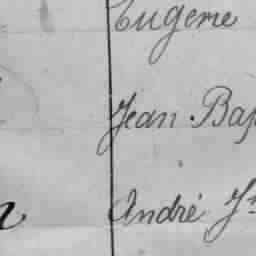 Eugene
Jean Bap
André Jn